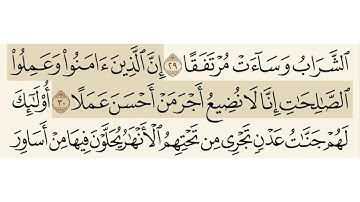 ٱلشَّرَابُ وَسَآءَتْ مُرْتَفَقًا ٢٩ إِنَّ ٱلَّذِينَ ءَامَنُوا۟ وَعَمِلُوا۟
ٱلصَّٰلِحَٰتِ إِنَّا لَا نُضِيعُ أَجْرَ مَنْ أَحْسَنَ عَمَلًا ٣٠ أُو۟لَٰٓئِكَ
لَهُمْ جَنَّٰتُ عَدْنٍ تَجْرِى مِن تَحْتِهِمُ ٱلْأَنْهَٰرُ يُحَلَّوْنَ فِيهَا مِنْ أَسَاوِرَ